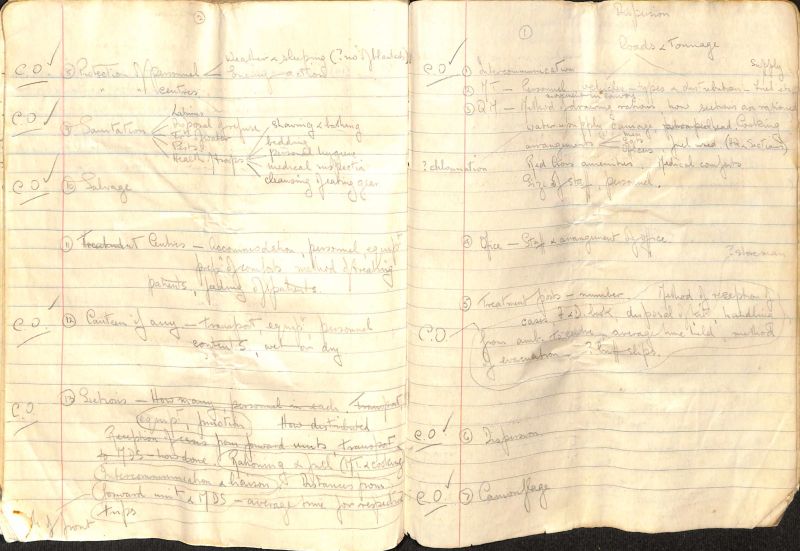 ②
C.O. ✓ ⑧ Protection of personnel < weather & sleeping (? no. of blankets)
Enemy action
" " centres
C.O. ✓ ⑨ Sanitation
latrines
Disposal of refuse
Pests
Health of troops
shaving & bathing
bedding
personal hygiene
medical inspection
cleansing of eating gear
C.O. ✓ ⑩ Salvage
⑪ Treatment Centres – accommodation, personnel equipt
prepn of comforts method of treating
patients, feeding of patients.
C.O. ✓ ⑫ Canteen if any – transport, equipt, personnel
contents, wet or dry
C.O. ✓ ⑬ Sections – How many personnel in each. Transport,
equipt, function How distributed
Reception of cases from forward units, transport
to MDS – how done. Rationing & fuel (M.T. & cooking)
Intercommunication & liaison. Distances from
forward unit & MDS – average time for respective
trips
of front
①
Dispersion
Roads & Tonnage
C.O. ✓ ① Intercommunication
Supply
② MT – Personnel, vehicles – types & distribution – fuel etc
③ QM – Method of drawing rations how sections are rationed
water supply Cooking
arrangements fuel used (HQ & Sections)
? chlorination Red Cross amenities, Medical comforts
Size of staff, personnel.
④ Office – Staff & arrangement of office
? storeman
⑤ Treatment posts – number. Method of reception of
cases, A & D book, disposal of kit, handling
C.O. ✓ from amb. to centre – average time held, method
of evacuation – ? Buff slips.
C.O. ✓ ⑥ Dispersion
C.O. ✓ ⑦ Camouflage